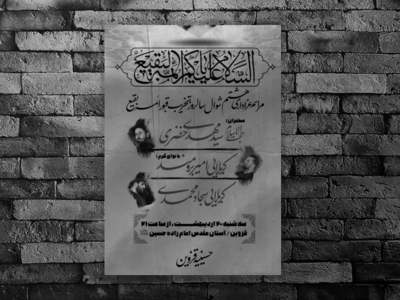 السلام علیکم یا ائمة البقیع
مراسم عزاداری هشتم شوال سالروز تخریب قبور ائمه بقیع
سخنران:
سید مهدی خضری
با نوای گرم:
کربلایی امیر برومند
کربلایی سجاد محمدی
سه شنبه ۲۰ اردیبهشت ، از ساعت ۲۱
قزوین / آستان مقدس امام زاده حسین
حسینیه قزوین